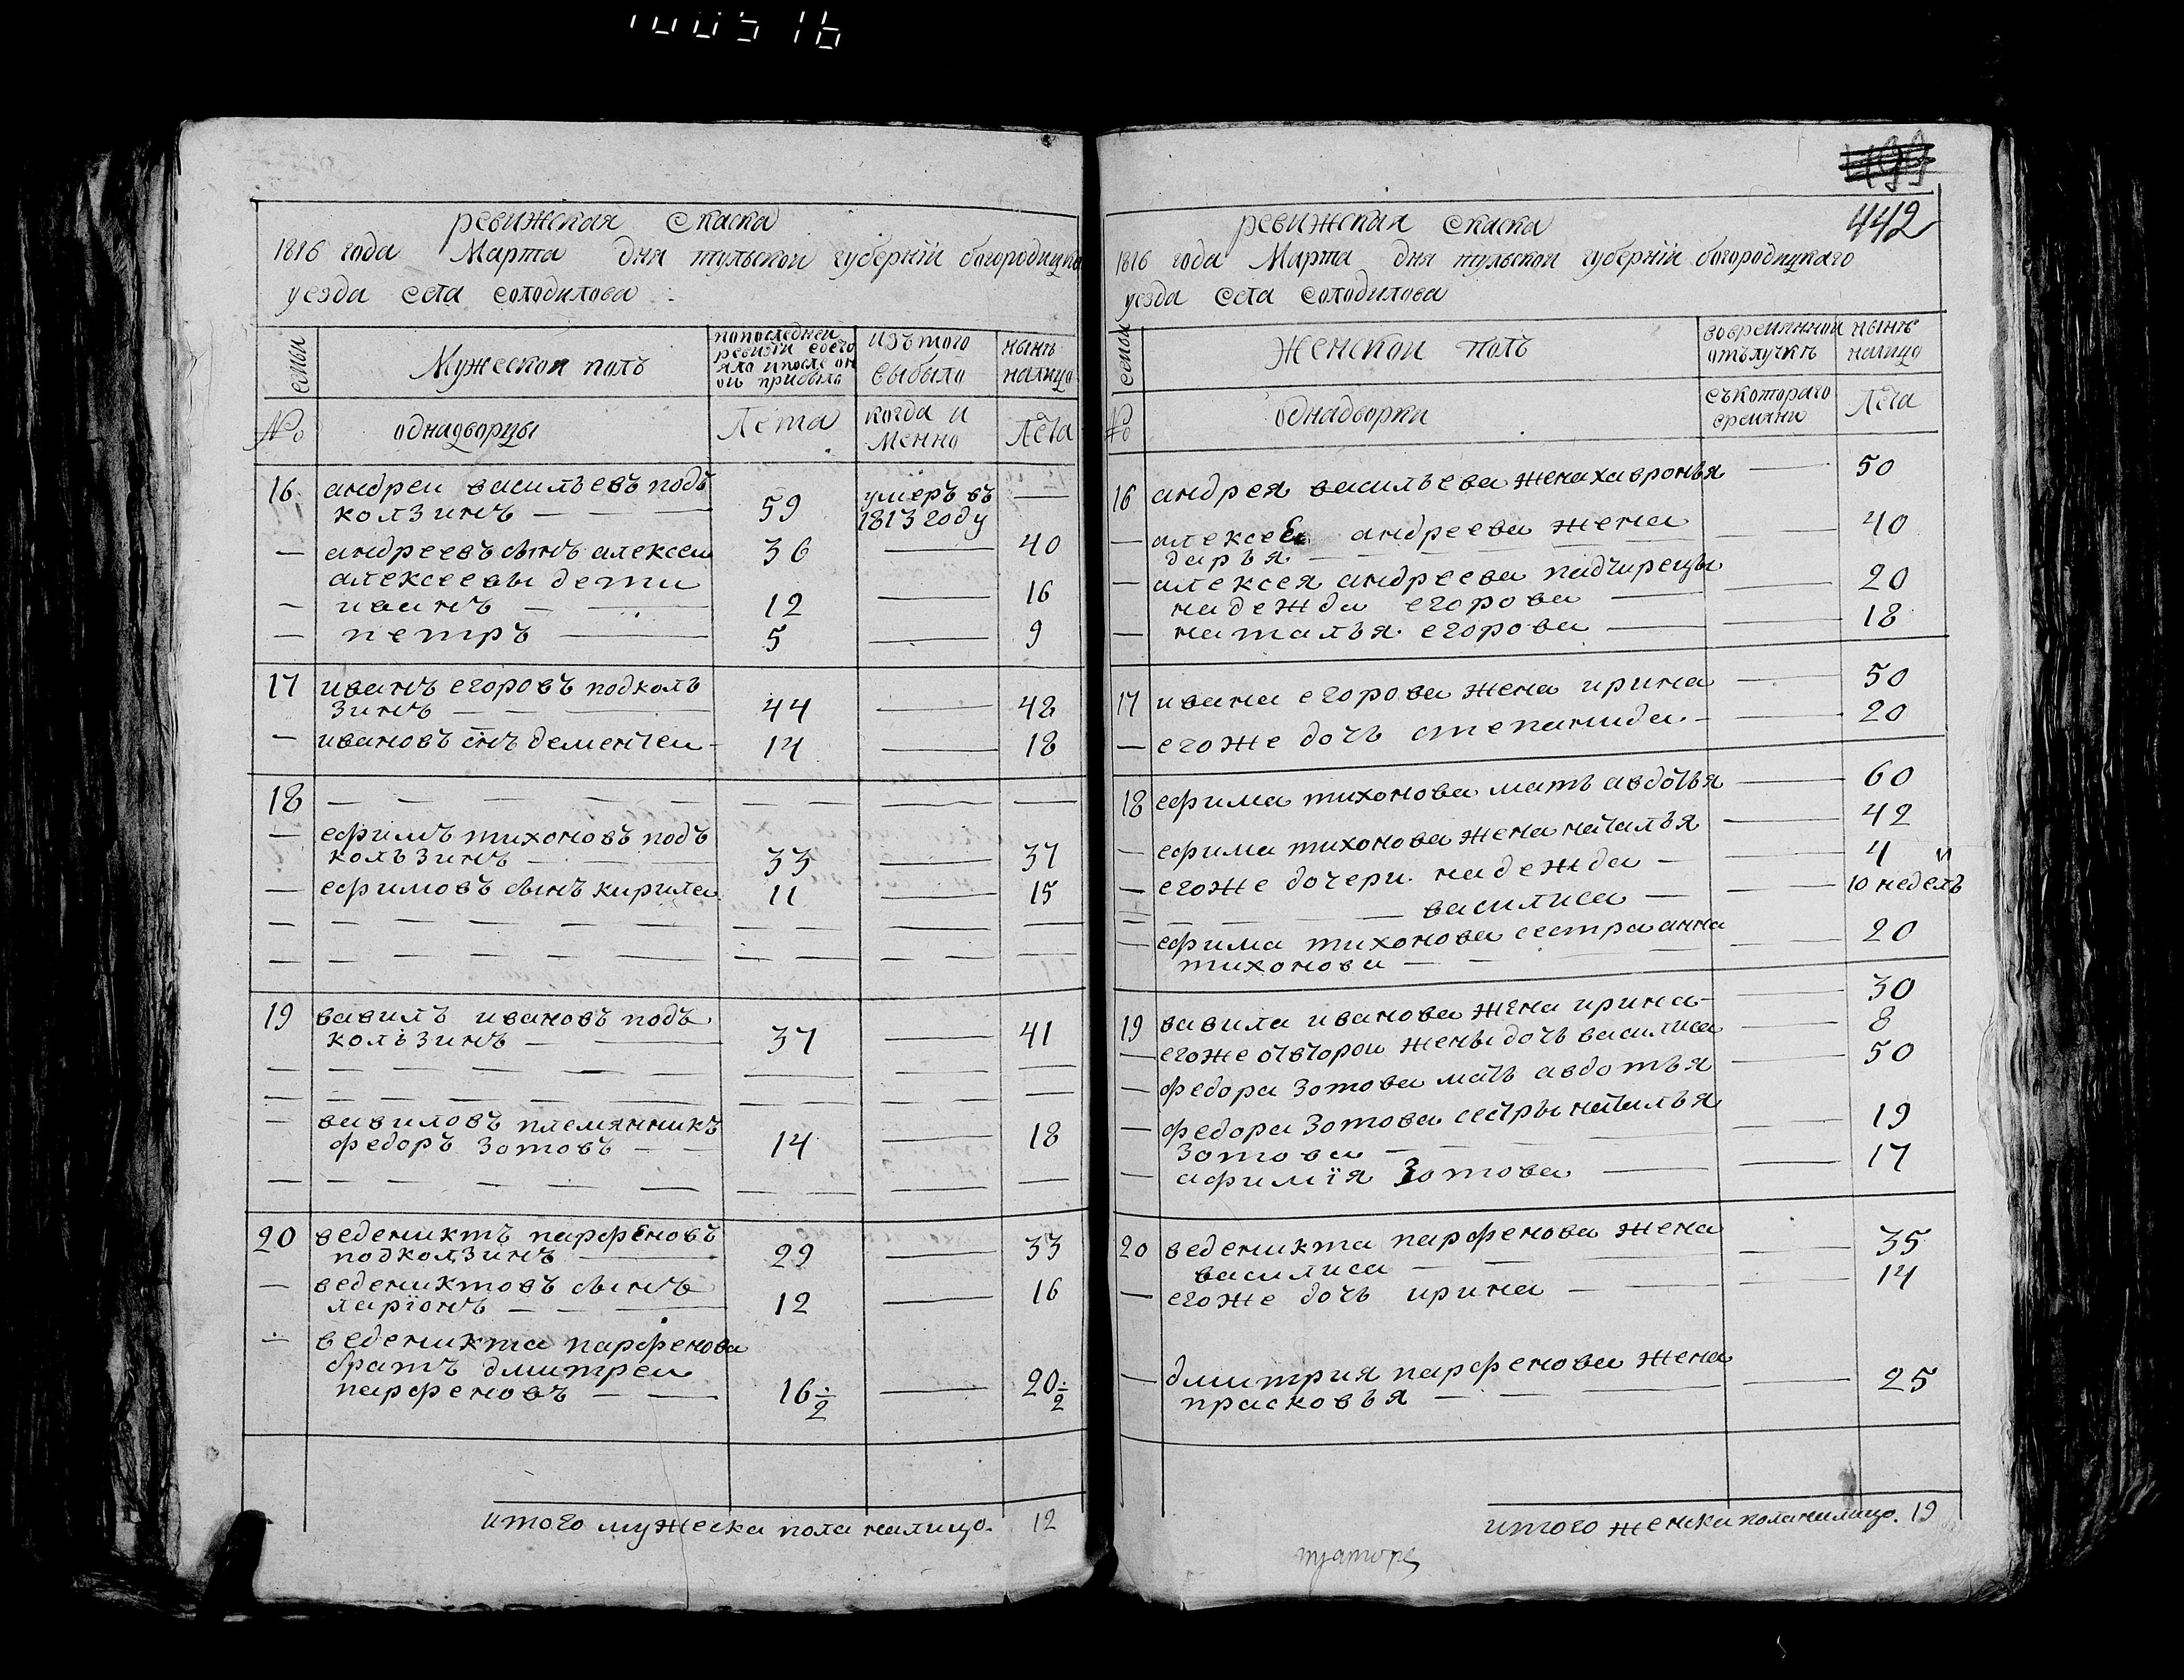 100516
499
442
ревижская скаска
1816 года Марта дня тульской губернїи богородицка
уезда села солодилова
семьи
Мужескои полъ
попоследней
ревизїи состо
яло и после он
ои прибыло
изъ того
выбыло
нынѣ
налицо
№
однадворцы
Лета
когда и
менно
Лета
16 андреи васильевъ подъ
колзинъ 59 умеръ въ
1813 году
андреевъ сынъ алексеи 36 40
алексеевы дети
иванъ 12 16
петръ 5 9
17 иванъ егоровъ подколь
зинъ 44 48
ивановъ снъ дементеи 14 18
18
ефимъ тихоновъ подъ
кользинъ 33 37
ефимовъ сынъ кирила 11 15
19 вавилъ ивановъ подъ
кользинъ 37 41
вавиловъ племянникъ
федоръ Зотовъ 14 18
20 веденикть парфеновъ
подколзинъ 29 33
дениктовъ сынъ
ларїонъ 12 16
веденикта парфенова
братъ дмитреи
парфеновъ 16 ÷ 2 20 ÷ 2
итого мужеска пола налицо. 12
ревижская скаска
1816 года Марта дня тульской губернїи богородицкаго
уезда села солодилова
семьи
Женскои полъ
вовремяннои
отълучкѣ
нынѣ
налицо
№
однадворки
съкотораго
времяни
Лета
16 андрея васильева жена хавронья 50
алексеЕ андреева жена 40
дарья
алексея андреева падчирецы
надежда егорова 20
наталья егорова 18
17 ивана егорова жена ирина 50
егоже дочь степанида 20
18 ефима тихонова мать авдотья 60
ефима тихонова жена наталья 42
егоже дочери надежда 4
василиса 10 недель
ефима тихонова сестра анна
тихонова 20
19 вавила иванова жена ирина 30
егоже отвторои жены дочь василиса 8
федора Зотова мать авдотья 50
федора Зотова сестры наталья
Зотова 19
афимїя Зотова 17
20 веденикта парфенова жена
василиса 35
егоже дочь ирина 14
дмитрия парфенова жена
прасковья 25
итого женска пола налицо. 19